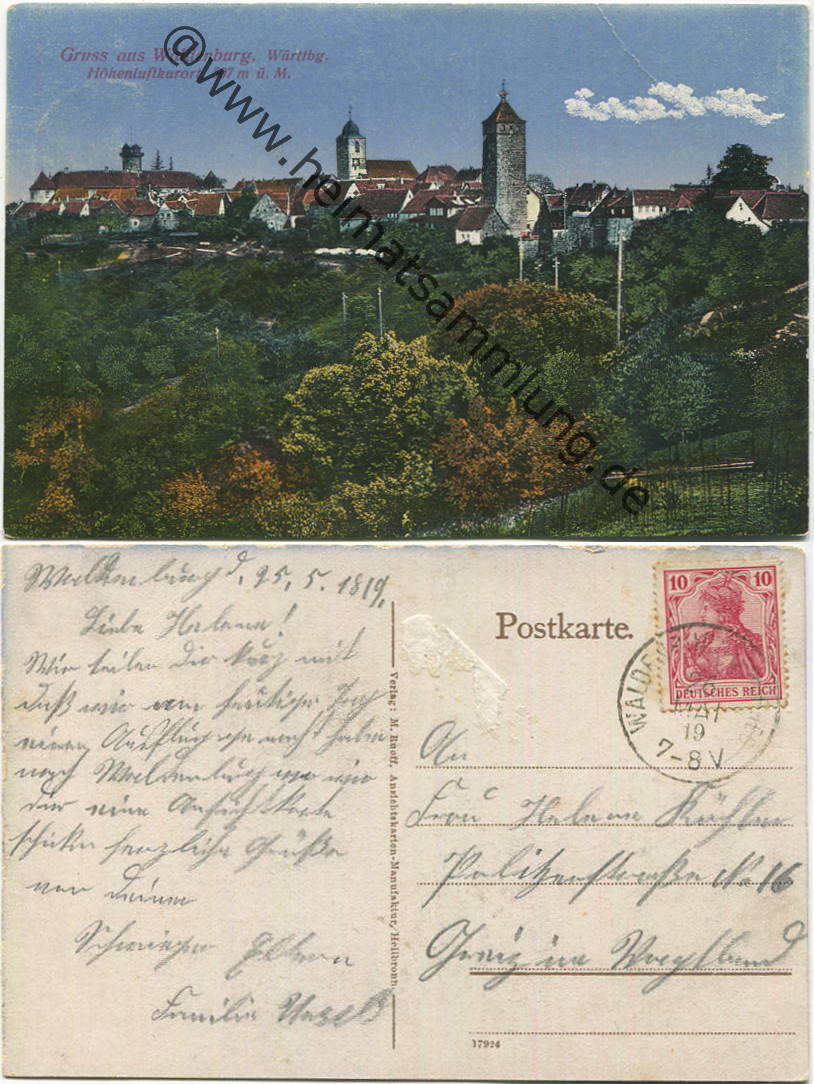 Gruss aus Waldenburg, Württbg.
Höhenluftkurort 507 m ü. M.
@www.heimatsammlung.de
Waldenburg d, 25, 5. 1819,
Liebe Helene!
Wir teilen dir kurz mit
daß wir am heutigen Tag
einen Ausflug gemacht haben
nach Waldenburg wo wir
dir eine Ansichtskarte
schicken herzliche Grüße
von deinen
Schwieger Eltern
Familie
Verlag: M. Ruoff, Ansichtskarten-Manufaktur, Heilbronn.
Postkarte.
10 10
DEUTSCHES REICH
MAI
19
7-8V
An
Frau Helene
No 16
Greiz im Vogtland
17924